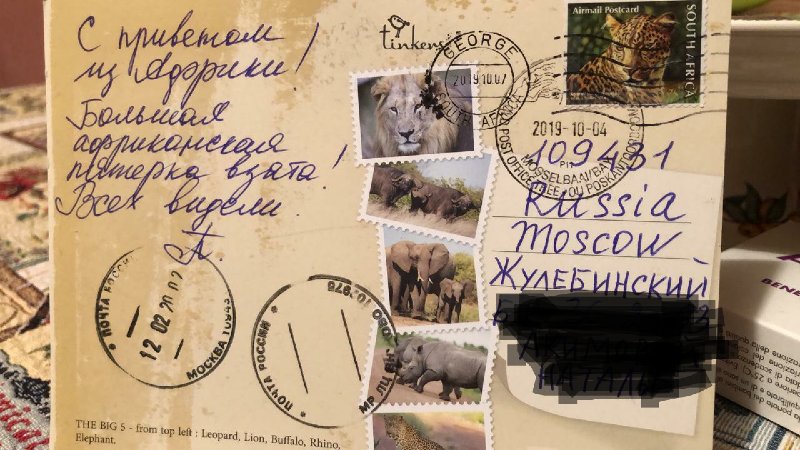 С приветом
из Африки!
Большая
африканская
пятерка взята!
Всех видели
А.
tinkers
GEORGE
2019.10.07
SOUTH AFRICA
Airmail Postcard
SOUTH AFRICA
2019-10-04
MOSSELBAAI/BAY
POST OFFICE
109431
Russia
Moscow
Жулебинский
ПОЧТА РОССИИ
12 02 20
МОСКВА
ПОЧТА РОССИИ
МР ЛЦ
THE BIG 5 - from top left : Leopard, Lion, Buffalo, Rhino,
Elephant.